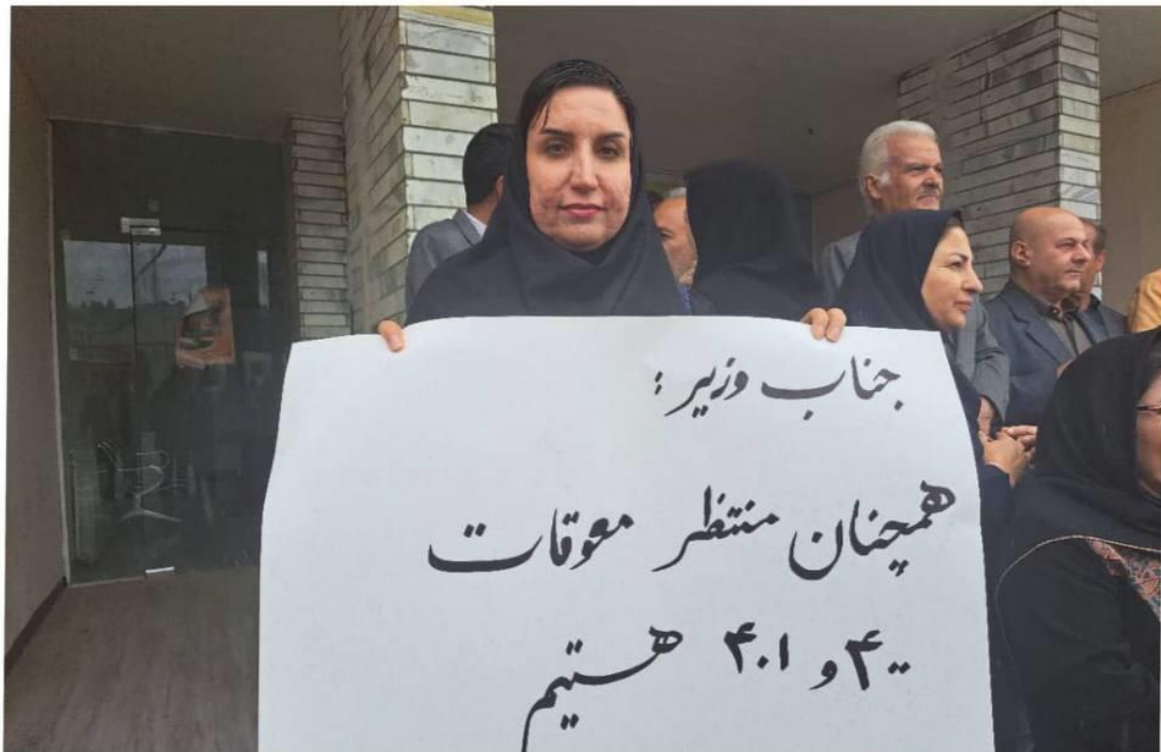 جناب وزیر :
همچنان منتظر معوقات
۴۰۰ و ۴۰۱ هستیم